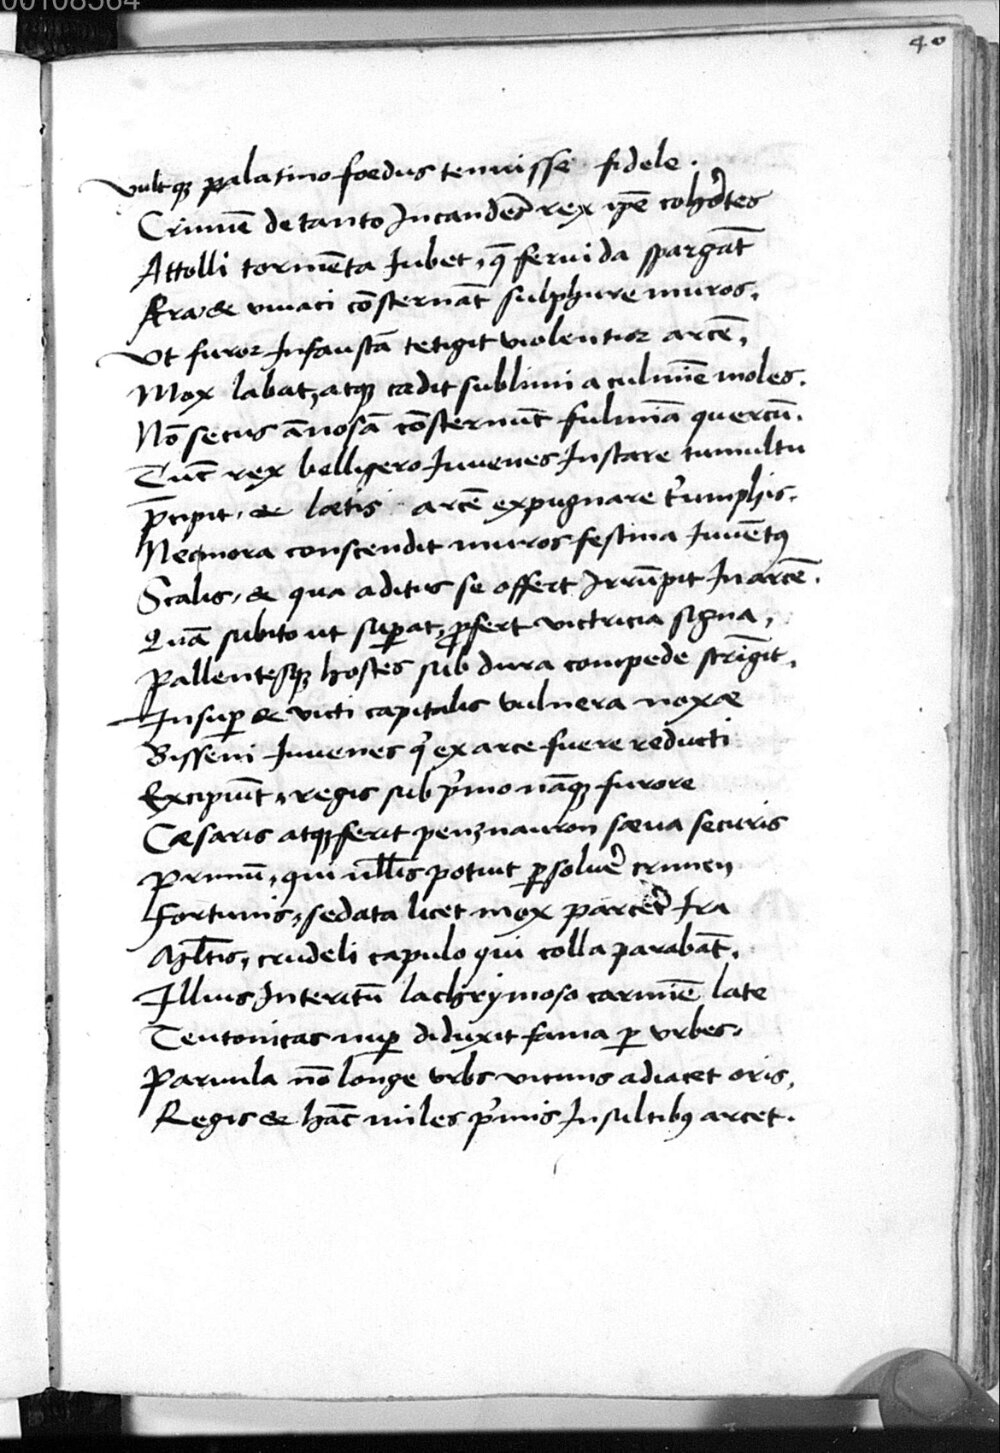 00108564
40
Vultq; palatino foedus tenuisse fidele.
Crimē de tanto Incandēs rex ipē cohortes
Attolli tormēta Iubet, q̄ feruida spargāt
Aera & viuaci cōsternāt sulphure muros.
Vt furor Infaustā tetigit violentior arcē,
Mox labat, atq; cadit sublimi a culmīe moles.
Nō secus ānosā cōsternūt fulmīa quercū.
Tūc rex belligero Iuuenes Instare tumultu
p̄cipit, & laetis arcē expugnare triumphis.
Nec mora conscendit muros festina Iuuētꝰ
Scalis, & qua aditus se offert Irrūpit In arcē.
Quā subito ut suꝑat, ꝓfert victricia signa,
Pallentesq; hostes sub dura compede strīgit.
Insuꝑ & victi capitalis vulnera noxae
Bisseni Iuuenes q̄ ex arce fuere reducti
Excipiūt, regis sub p̄mo nāq; furore
Caesaris atq; ferit penznauron saeua securis
Primū, qui nll̄is potuit ꝑsoluē crimen
Fortunis, sedata licet mox parcēt Ira
Ml̄tis, crudeli capulo qui colla parabāt.
Illius Interitū lachrymoso carmīe late
Teutonicas nuꝑ diduxit fama ꝑ vrbes.
Paruula nō longe vrbs vicinis adiacet oris,
Regis & hāc miles p̄mis Insultibꝰ arcet.